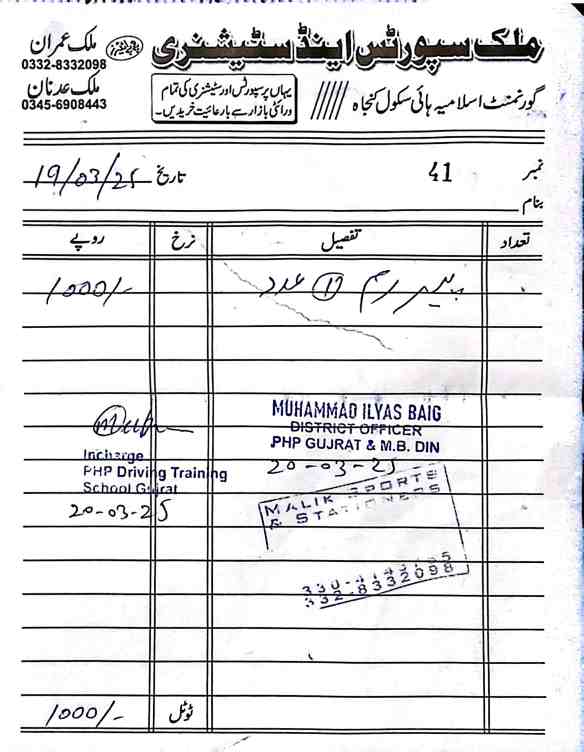 ملک سپورٹس اینڈ سٹیشنری
پروپرائیٹرز
ملک عمران
0332-8332098
ملک عدنان
0345-6908443
گورنمنٹ اسلامیہ ہائی سکول کنجاہ
یہاں پر سپورٹس اور سٹیشنری کی تمام
ورائٹی بازار سے بارعائیت خریدیں۔
نمبر 41
تاریخ 19/03/25
بنام
تعداد تفصیل نرخ روپے
پیپر رم (1) عدد 1000/-
MUHAMMAD ILYAS BAIG
DISTRICT OFFICER
PHP GUJRAT & M.B. DIN
20-03-25
Incharge
PHP Driving Training
School Gujrat
20-03-25
MALIK SPORTS
& STATIONERS
332-8332098
ٹوٹل 1000/-